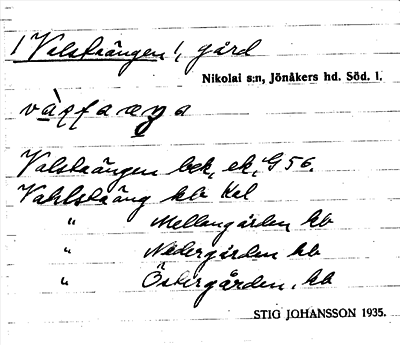 ! Valstaängen !, gård
Nikolai s:n, Jönåkers hd. Söd. l.
Valstaängen bek, ek, G 56.
Vahlstaäng kb Kal
" Mellangården kb
" Nedergården kb
" Östergården, kb
STIG JOHANSSON 1935.